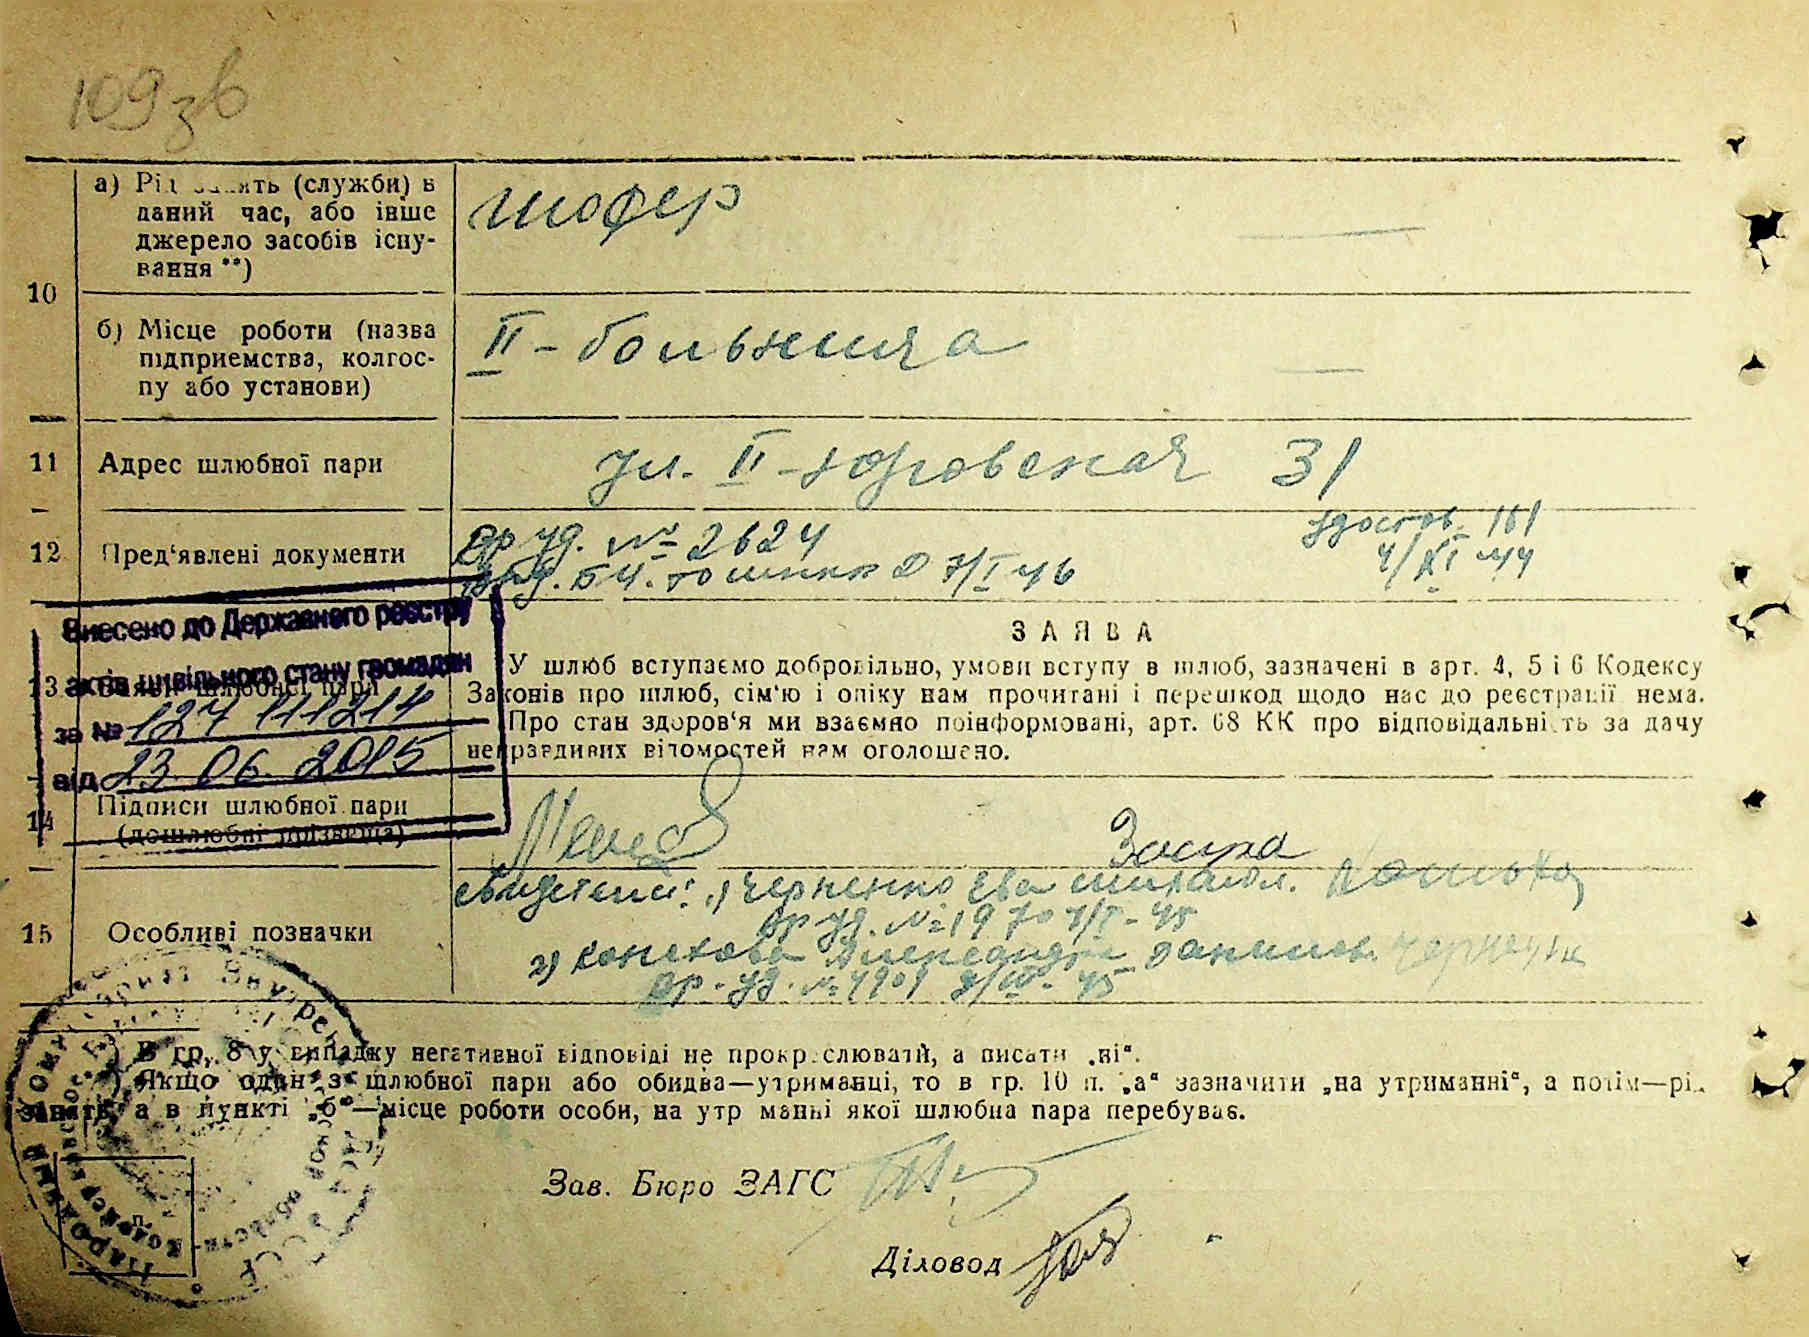 109 зв
а) Рід занять (служби) в
даний час, або інше
джерело засобів існу-
вання **)
шофер
10
б) Місце роботи (назва
підприемства, колгос-
пу або установи)
II - больница
11 Адрес шлюбної пари
ул. II - юровская 31
12 Пред'явлені документи
вр уд. № 2624
удостов. 161
4/XI 44
7/I 46
Внесено до Державного реєстру
актів цивільного стану громадян
за № 127 111214
від 23.06.2015
13 Заяви шлюбної пари
ЗАЯВА
У шлюб вступаємо добровільно, умови вступу в шлюб, зазначені в арт. 4, 5 і 6 Кодексу
Законів про шлюб, сім'ю і опіку нам прочитані і перешкод щодо нас до реєстрації нема.
Про стан здоров'я ми взаємно поінформовані, арт. 68 КК про відповідальність за дачу
неправдивих відомостей нам оголошено.
14 Підписи шлюбної пари
(дошлюбні прізвища)
15 Особливі позначки
свидетели: 1) Черненко Ева
вр уд. № 1970
2) Данилов.
вр. уд. № 4901
) В гр. 8 у випадку негативної відповіді не прокреслювати, а писати „ні“.
) Якщо один з шлюбної пари або обидва—утриманці, то в гр. 10 п. „а“ зазначити „на утриманні“, а потім—рід
занять, а в пункті „б“—місце роботи особи, на утриманні якої шлюбна пара перебуває.
Зав. Бюро ЗАГС
Діловод